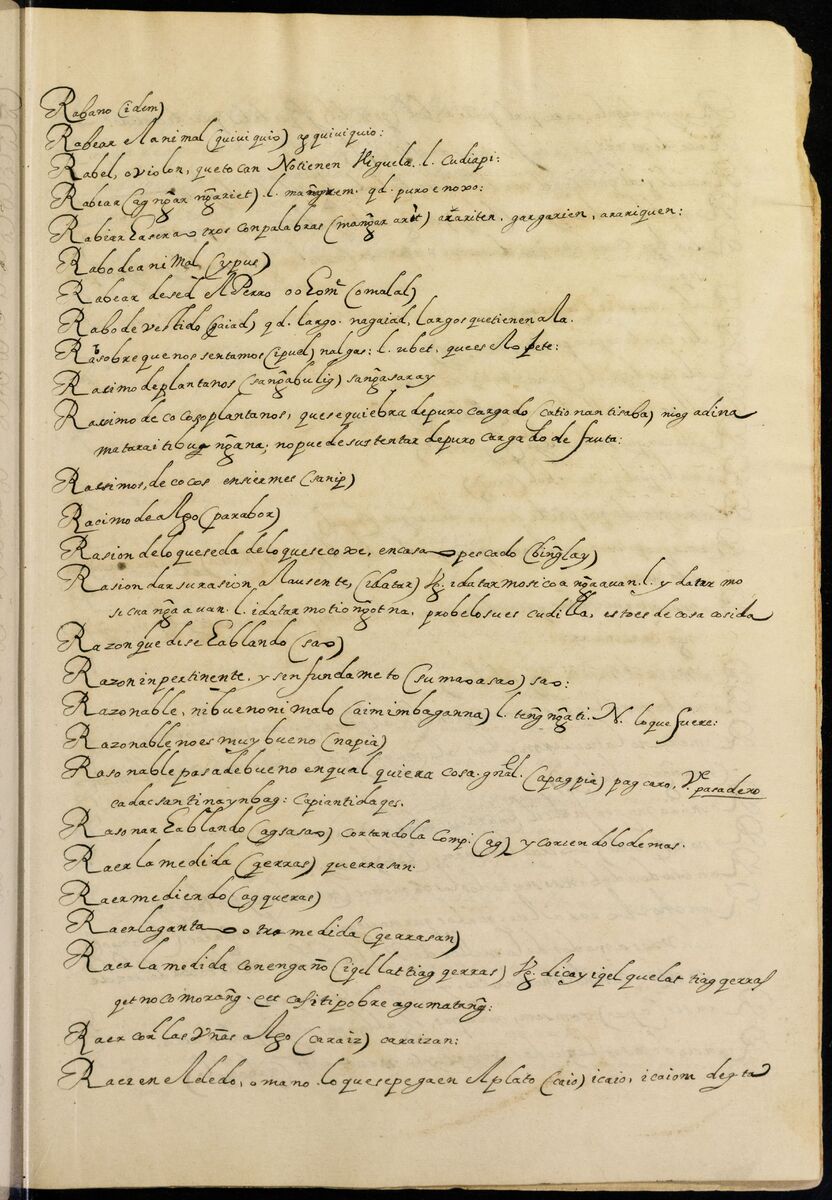 Rabano (idem)
Rabear el animal (quiuiquio) ag quiuiquio:
Rabel, o violon, que tocan No tienen Higuela. l. cudiapi:
Rabear (ag ng̃ar ng̃ariet) .l. mang̃rem. qd. puro enoxo:
Rabiar Easera otros con palabras (mang̃ar arit) arariten, gargarien, arariquen:
Rabo de animal (ypus)
Rabear de sed el Perro o o Eom.e (omalal)
Rabo de vestido (gaiad) qd. largo. nagaiad, largos que tienen ella.
Rabo sobre que nos sentamos (ipud) nalgas: l. ubet. que es el o pete:
Racimo de plantanos (sang̃abulig) sang̃asaray
Racimo de cocos o plantanos, que se quiebra de puro cargado (cationantisaba) niog adina
mataraitibug̃ ng̃ana; no puede sustentar de puro cargado de fruta:
Racimos, de cocos ensiermes (sanip)
Racimo de Algo (parabor)
Rasion de lo que se da de lo que se coxe, en casa o pescado (bing̃lay)
Rasion dar su rasion al ausente, (idatar) Vg. idatarmo sicoa ng̃a auan .l. y datar mo
si cua ng̃a auan .l. idatar mo tiong̃ot na, probelo su es cudilla, esto es de cosa cosida
Razon que dise Eablando (sao)
Razon inpertinente, y sin fundameto (sumaoasao) sao:
Razonable, ni bueno ni malo (aimimbaganna) l. teng̃ ng̃ati. N. lo que fuere:
Razonable no es muy bueno (napia)
Rasonable pasa de bueno en qual quiera cosa. gn̄al. (apagpia) pag caro, V.e pasadero
cadacsantinaynbag: capiantidaqes.
Rasonar Eablando (agsasao) cortando la comp: (ag) y coriendo lo demas.
Raer la medida (gerras) querrasan.
Raer mediendo (agqueras)
Raer la ganta o otra medida (gerrasan)
Raer la medida con engaño (iqel lat tiag qerras) Vg. dicay iqel quelat tiag qerras
qet nocomorang̃. qet casitipobre agumatang̃:
Raer con las vñas Algo (caraiz) caraizan:
Raer en el dedo, o mano lo que se pega en el plato (caio) icaio, icaiom deg̃ta